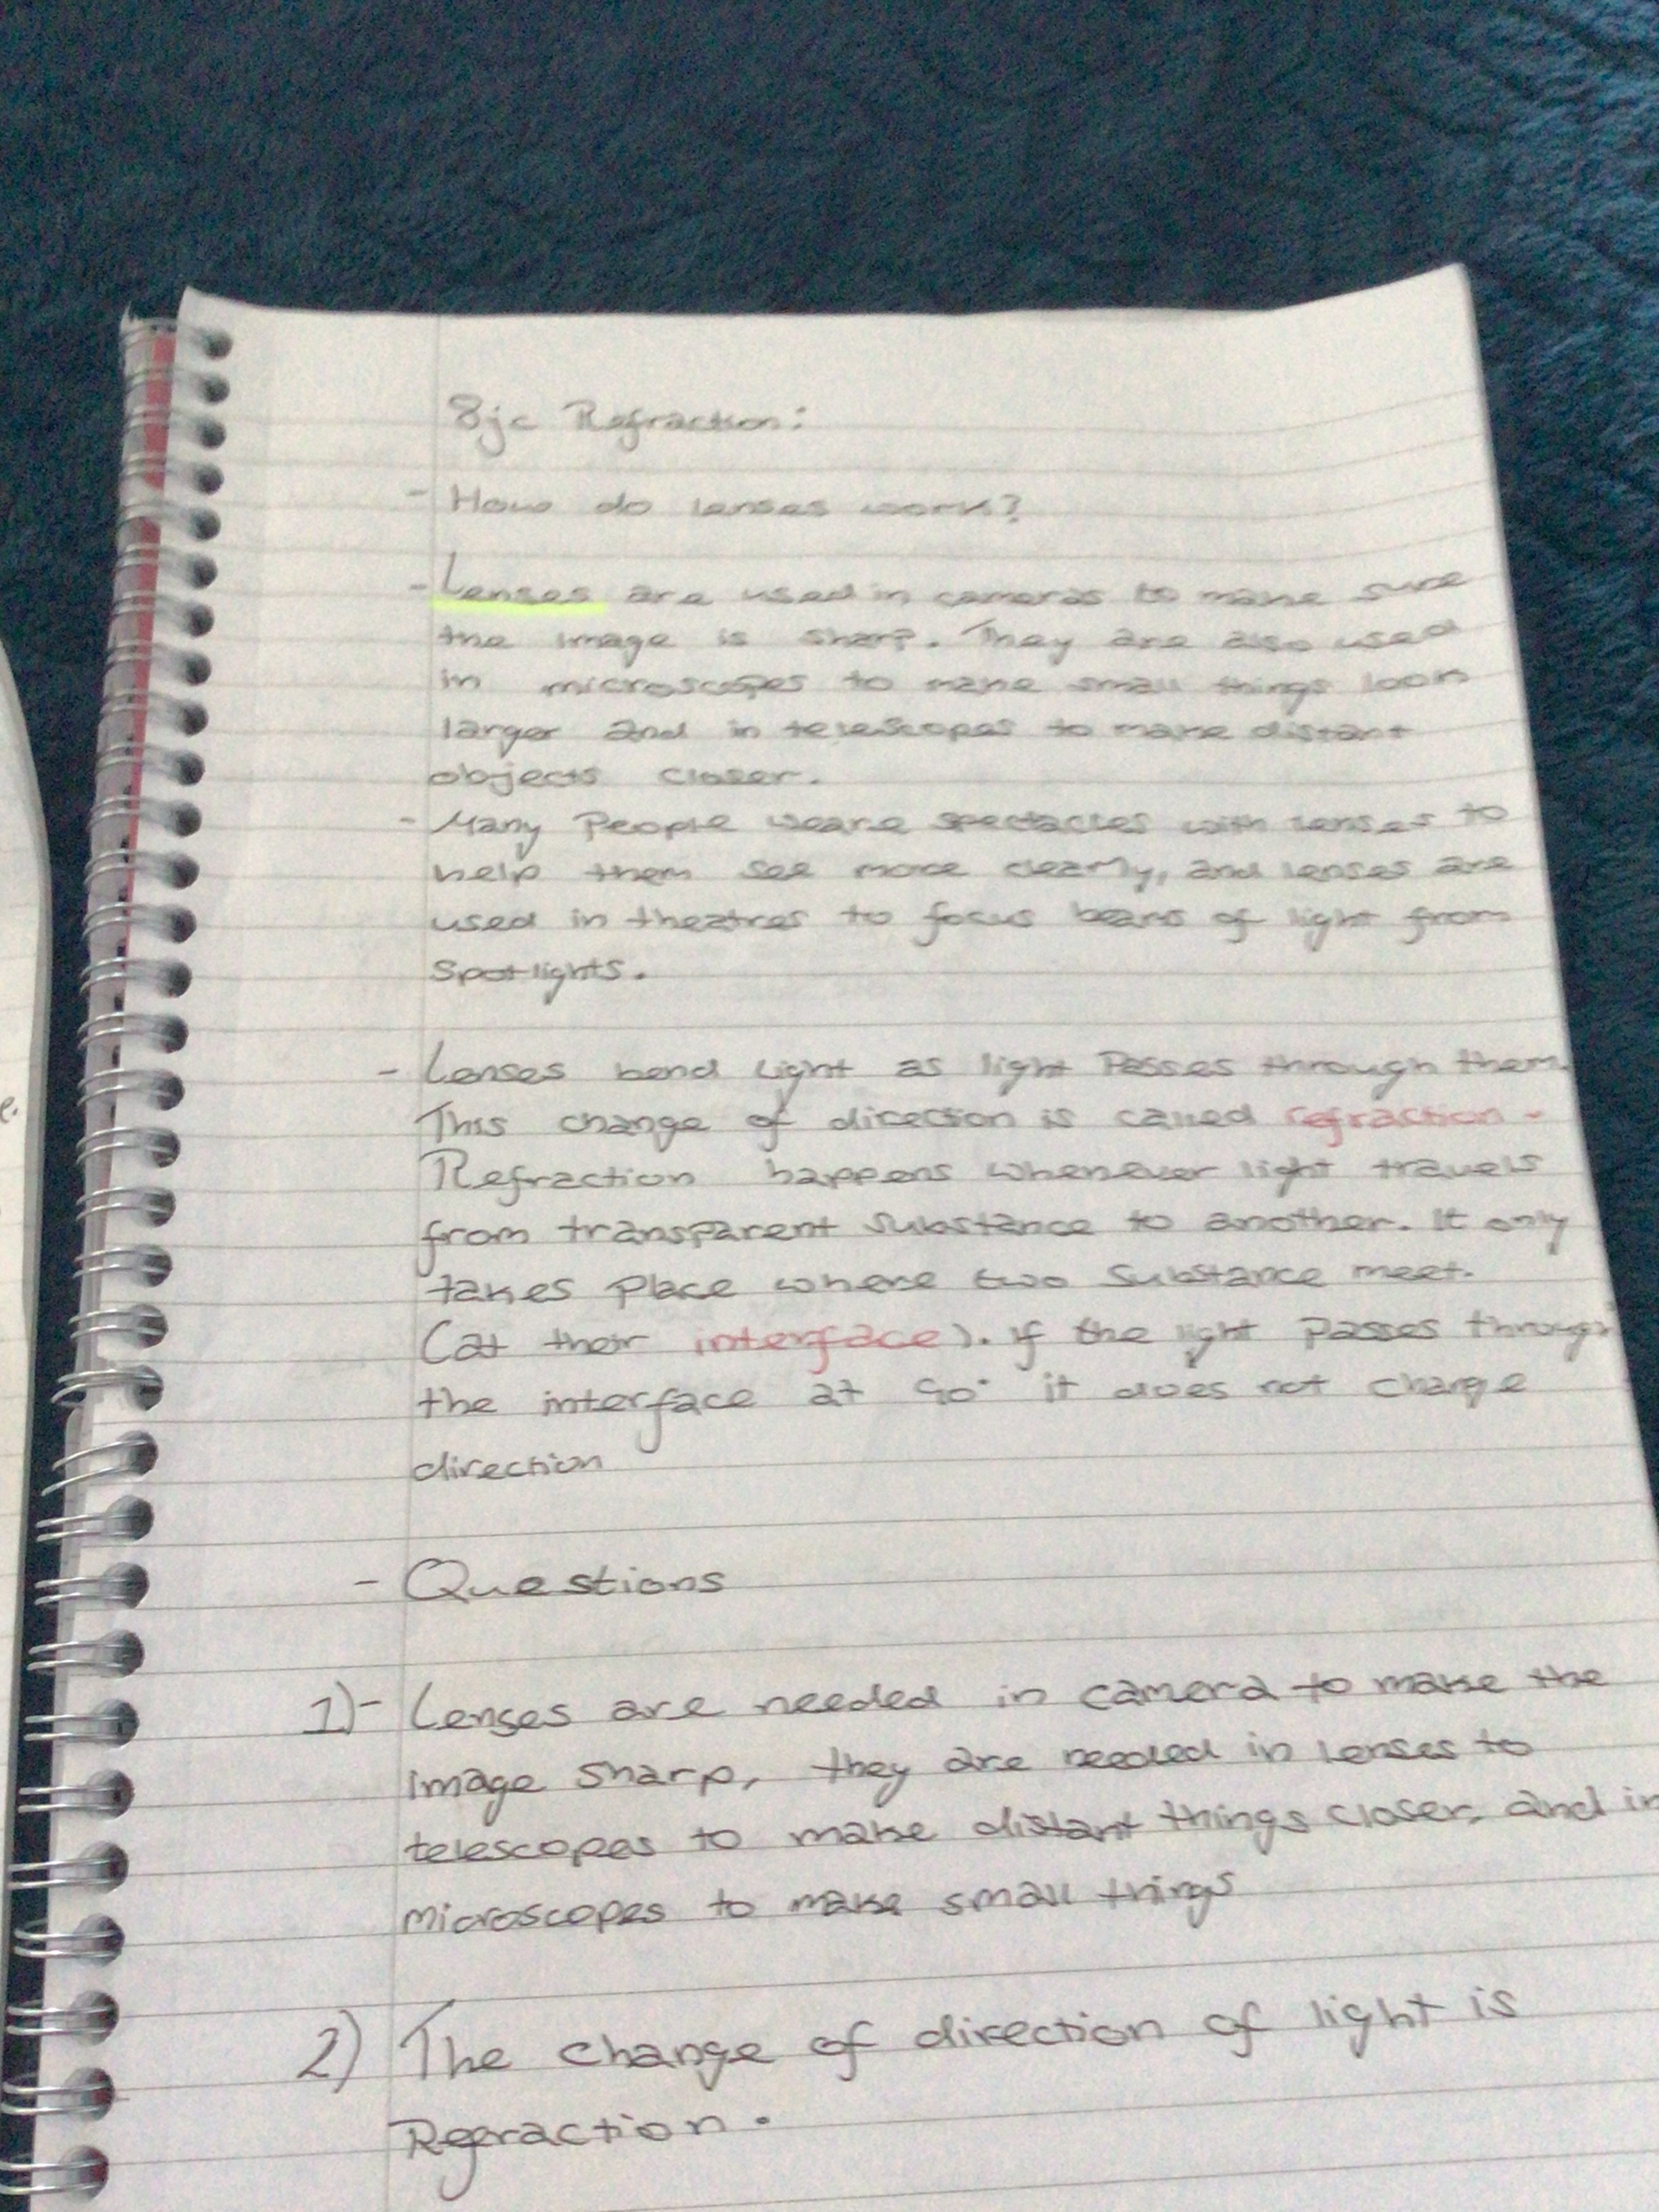 8jc Refraction:
- How do lenses work?
- Lenses are used in cameras to make sure
the image is sharp. They are also used
in microscopes to make small things look
larger and in telescopes to make distant
objects closer.
- Many People weare spectacles with lenses to
help them see more clearly, and lenses are
used in theatres to focus beams of light from
Spotlights.
- Lenses bend Light as light Passes through them.
This change of direction is called refraction.
Refraction happens whenever light travels
from transparent substance to another. It only
takes place where two substance meet.
(at their interface). If the light passes through
the interface at 90° it does not change
direction
- Questions
1)- Lenses are needed in camera to make the
image sharp, they are needed in lenses to
telescopes to make distant things closer, and in
microscopes to make small things
2) The change of direction of light is
Refraction.
e.